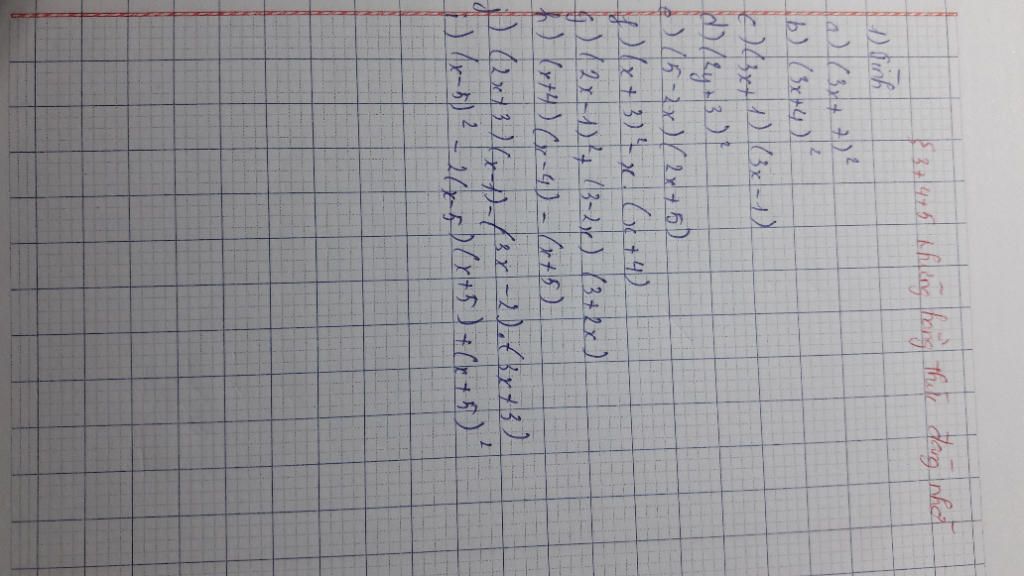 § 3+4+5 Những hằng thức đáng nhớ
1) Tính
a) (3x+7)²
b) (3x+4)²
c) (3x+1)(3x-1)
d) (2y+3)²
e) (5-2x)(2x+5)
f) (x+3)²-x.(x+4)
g) (2x-1)²+(3-2x)(3+2x)
h) (x+4)(x-4)-(x+5)
j) (2x+3)(x-1)-(3x-2).(3x+3)
i) (x-5)²-2(x-5)(x+5)+(x+5)²